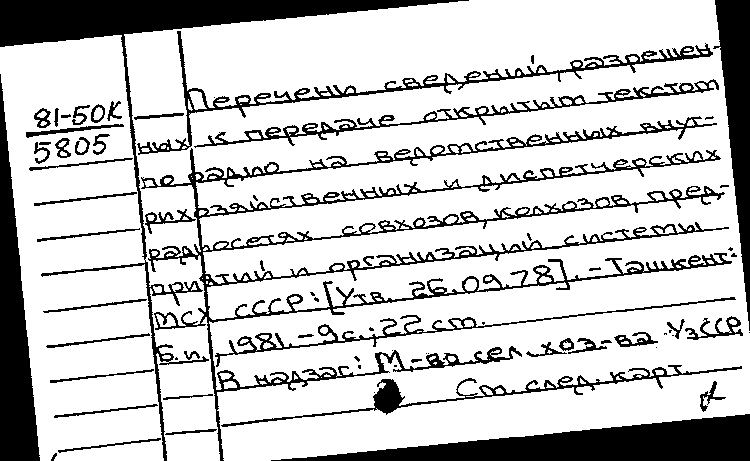 81-50К
5805
Перечени сведений, разрешен-
ных к передаче открытым текстом
по радио на ведомственных внут-
рихозяйственных и диспетчерских
радиосетях совхозов, колхозов, пред-
приятий и организаций системы
МСХ СССР: [Утв. 26.09.78]. - Ташкент:
Б.и., 1981. - 9 с.; 22 см.
В надзаг.: М-во сел. хоз-ва УзССР
См. след. карт.